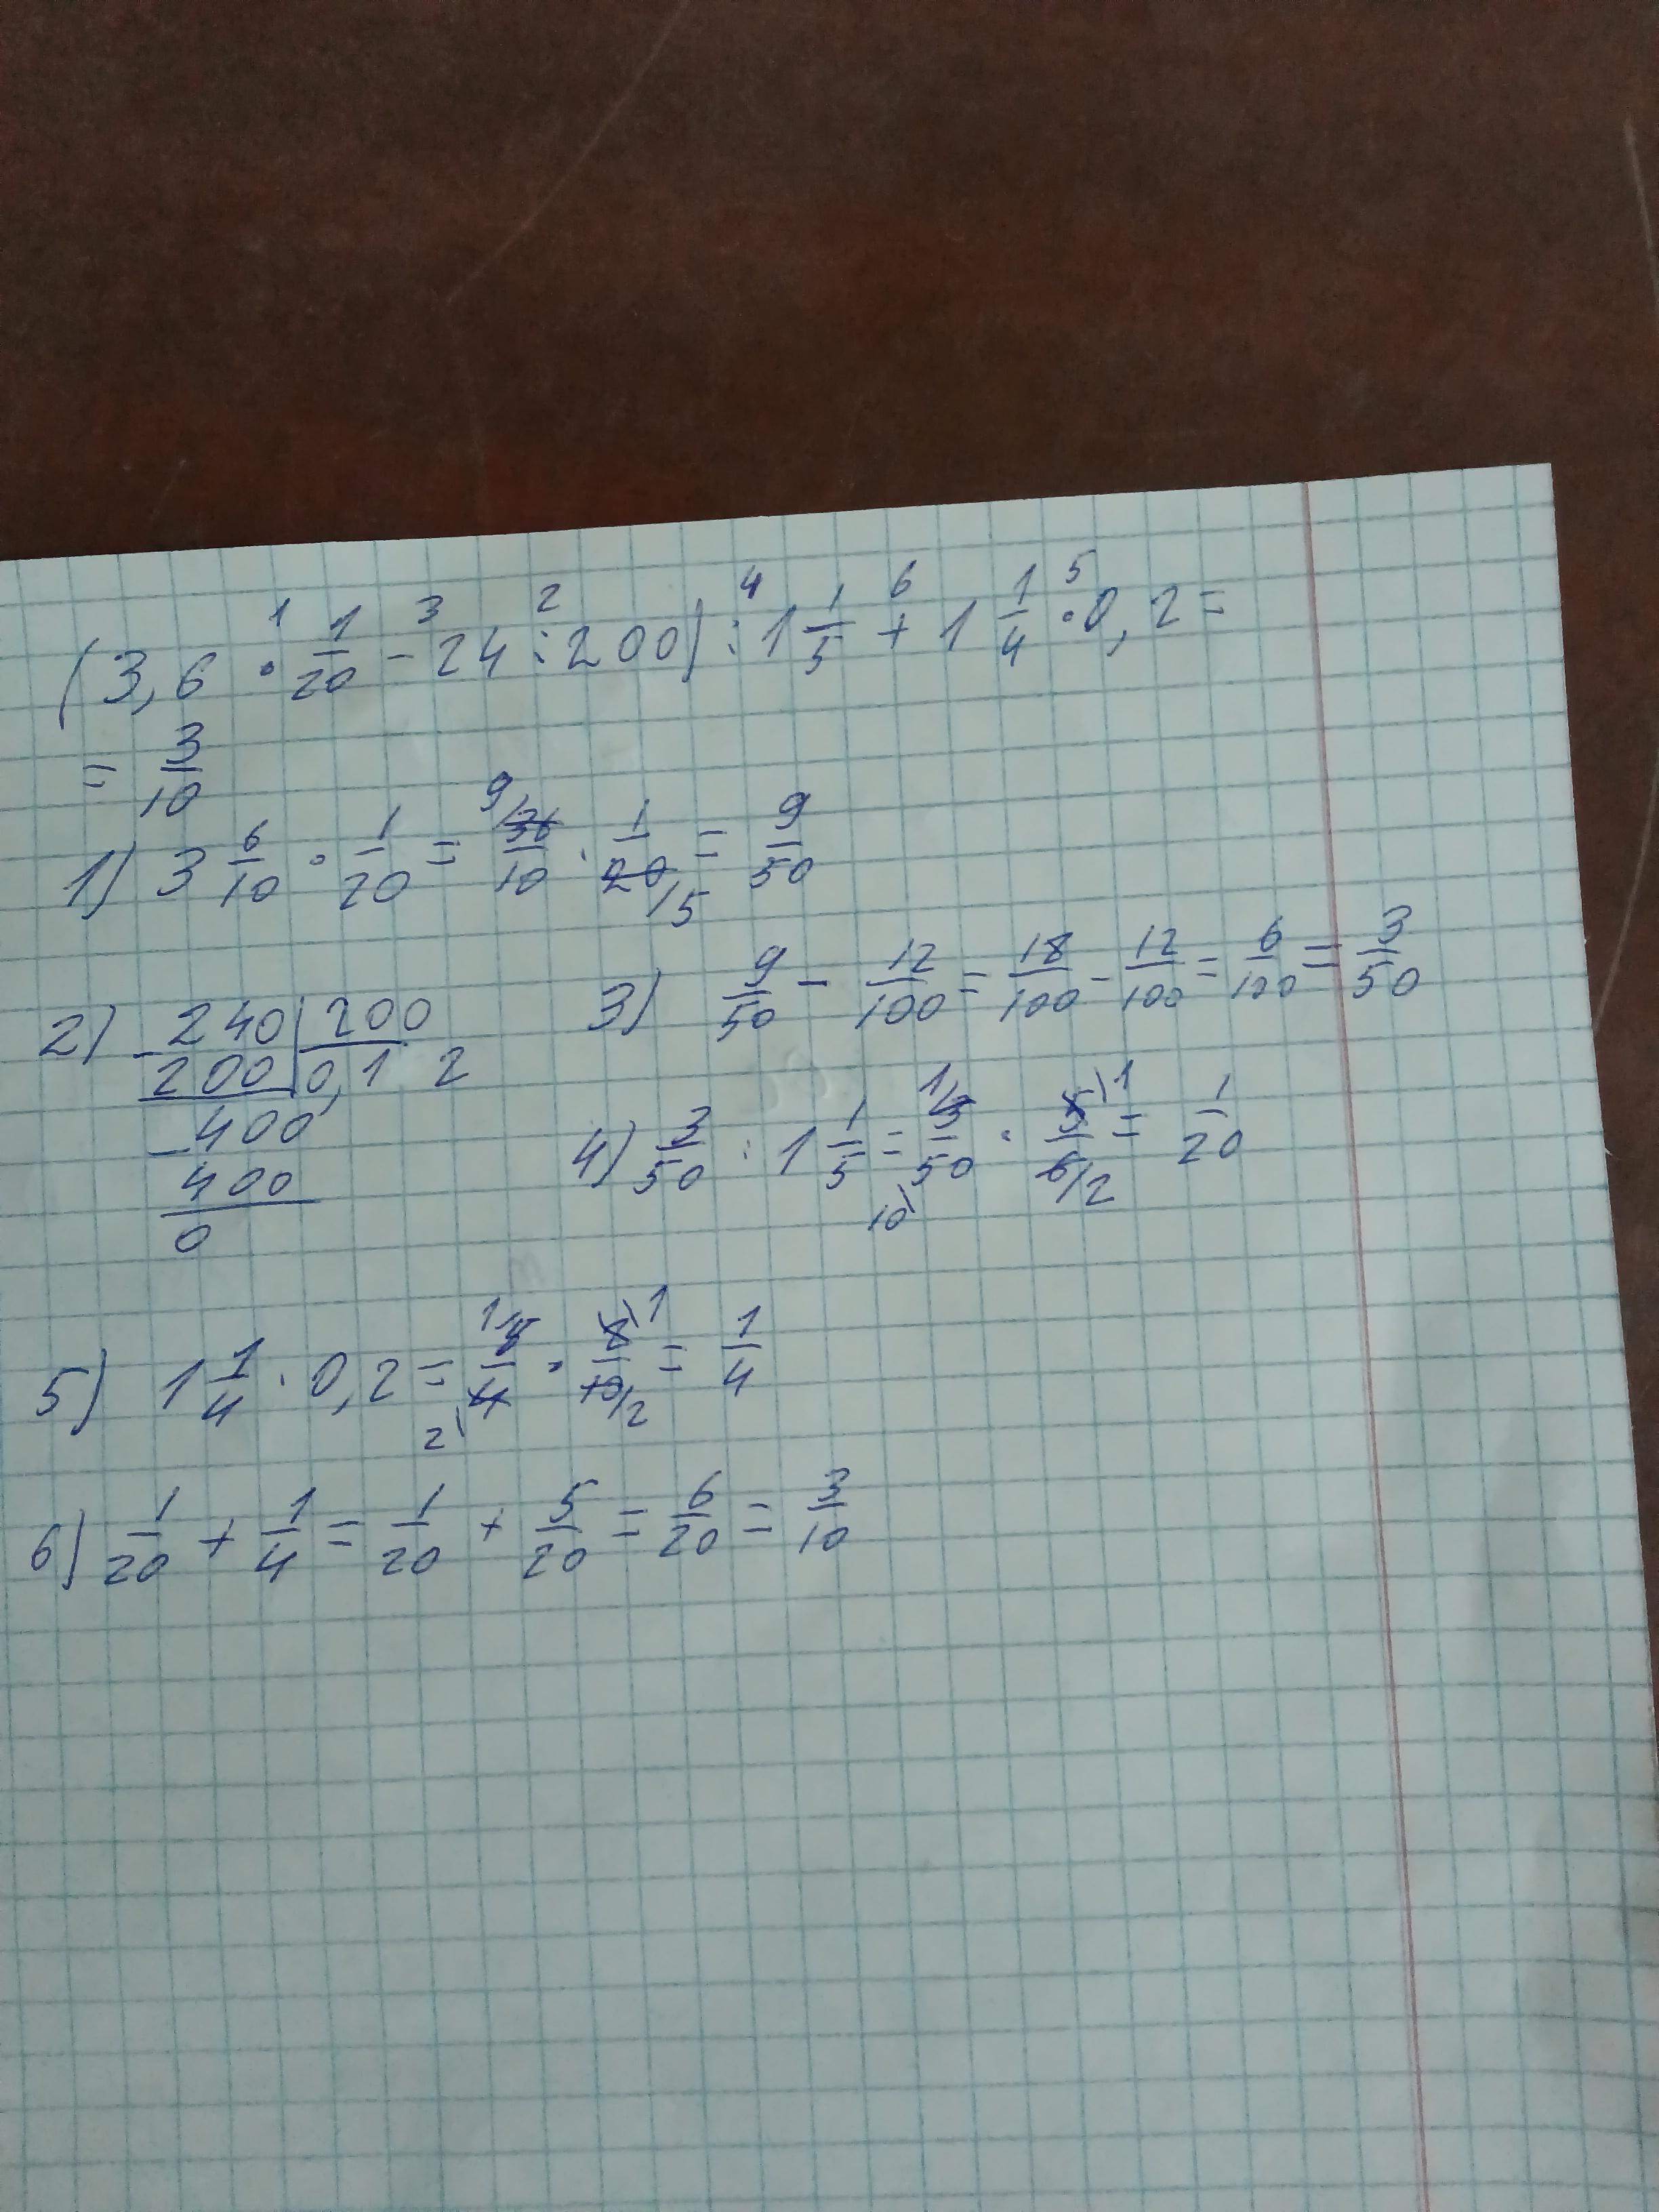 (3,6 · 1/20 - 24 : 200) : 1 1/5 + 1 1/4 · 0,2 =
= 3/10
1) 3 6/10 · 1/20 = 36/10 · 1/20 = 9/50
2) 240 | 200
- 200 | 0,12
400
- 400
0
3) 9/50 - 12/100 = 18/100 - 12/100 = 6/100 = 3/50
4) 3/50 : 1 1/5 = 3/50 · 5/6 = 1/20
5) 1 1/4 · 0,2 = 5/4 · 2/10 = 1/4
6) 1/20 + 1/4 = 1/20 + 5/20 = 6/20 = 3/10